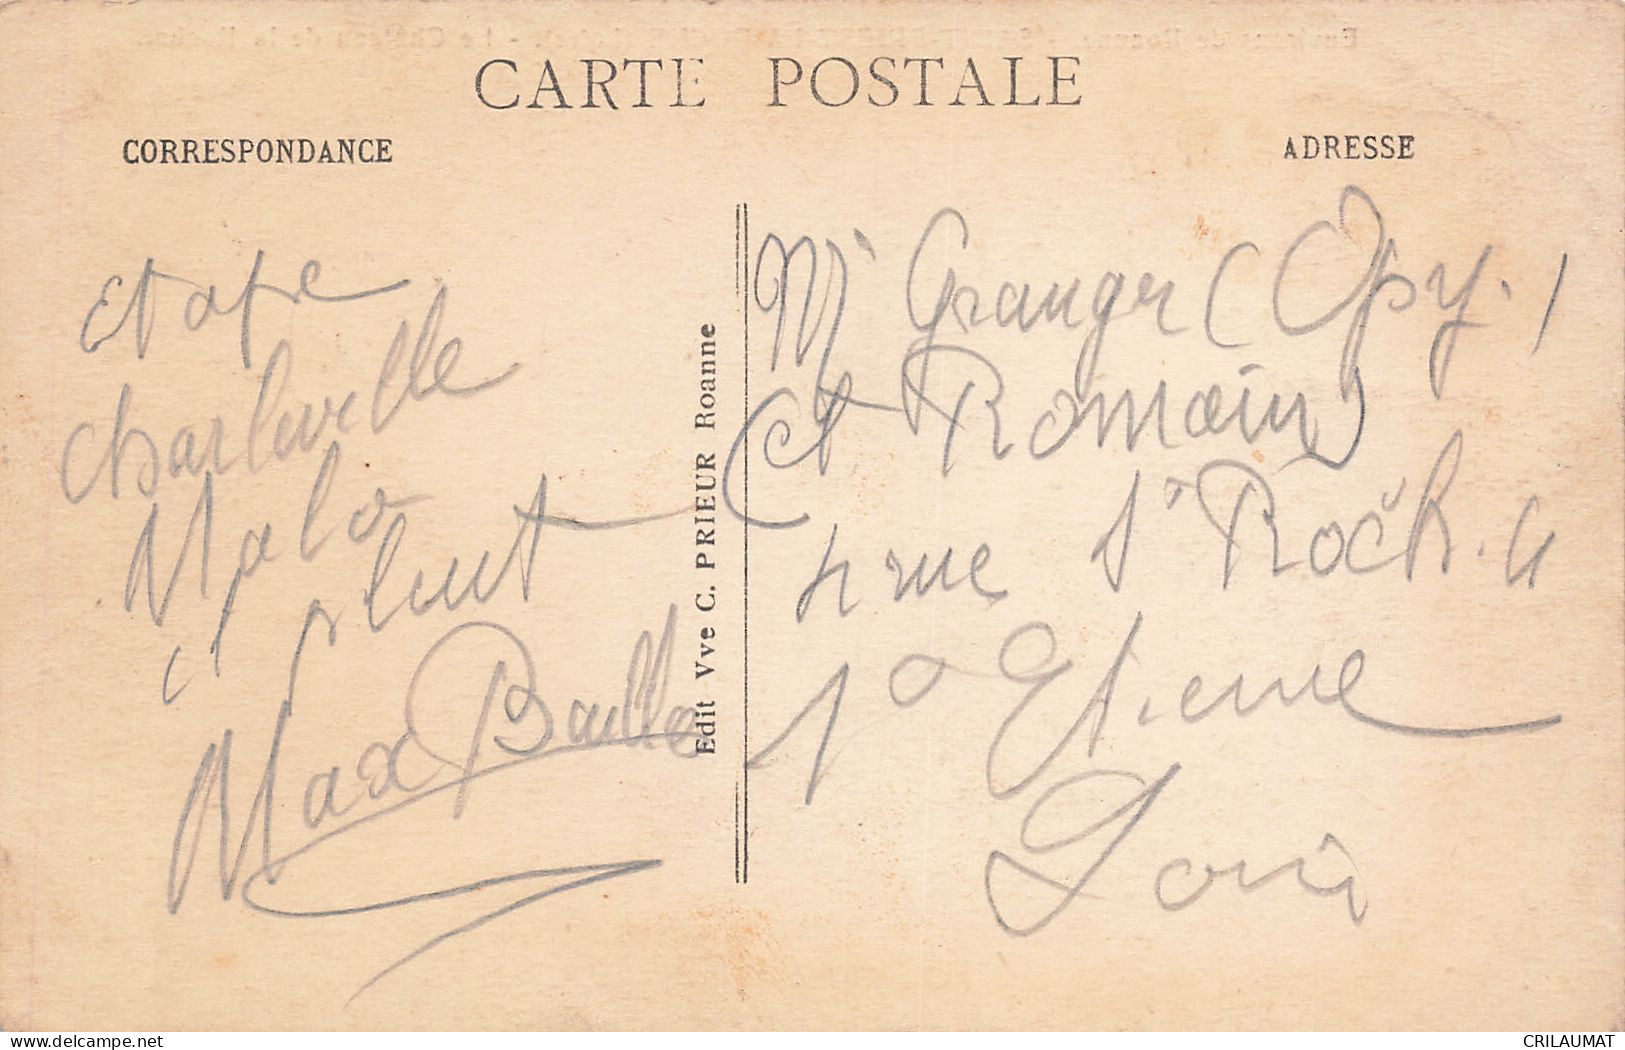 CARTE POSTALE
CORRESPONDANCE
ADRESSE
Etape
Charleville
Malo
Max Bulla
Edit Vve C. PRIEUR Roanne
Mr Granger (Opsy.)
Ct Romain
4 rue St Roch. 4
St Etienne
Loire
delcampe.net
CRILAUMAT